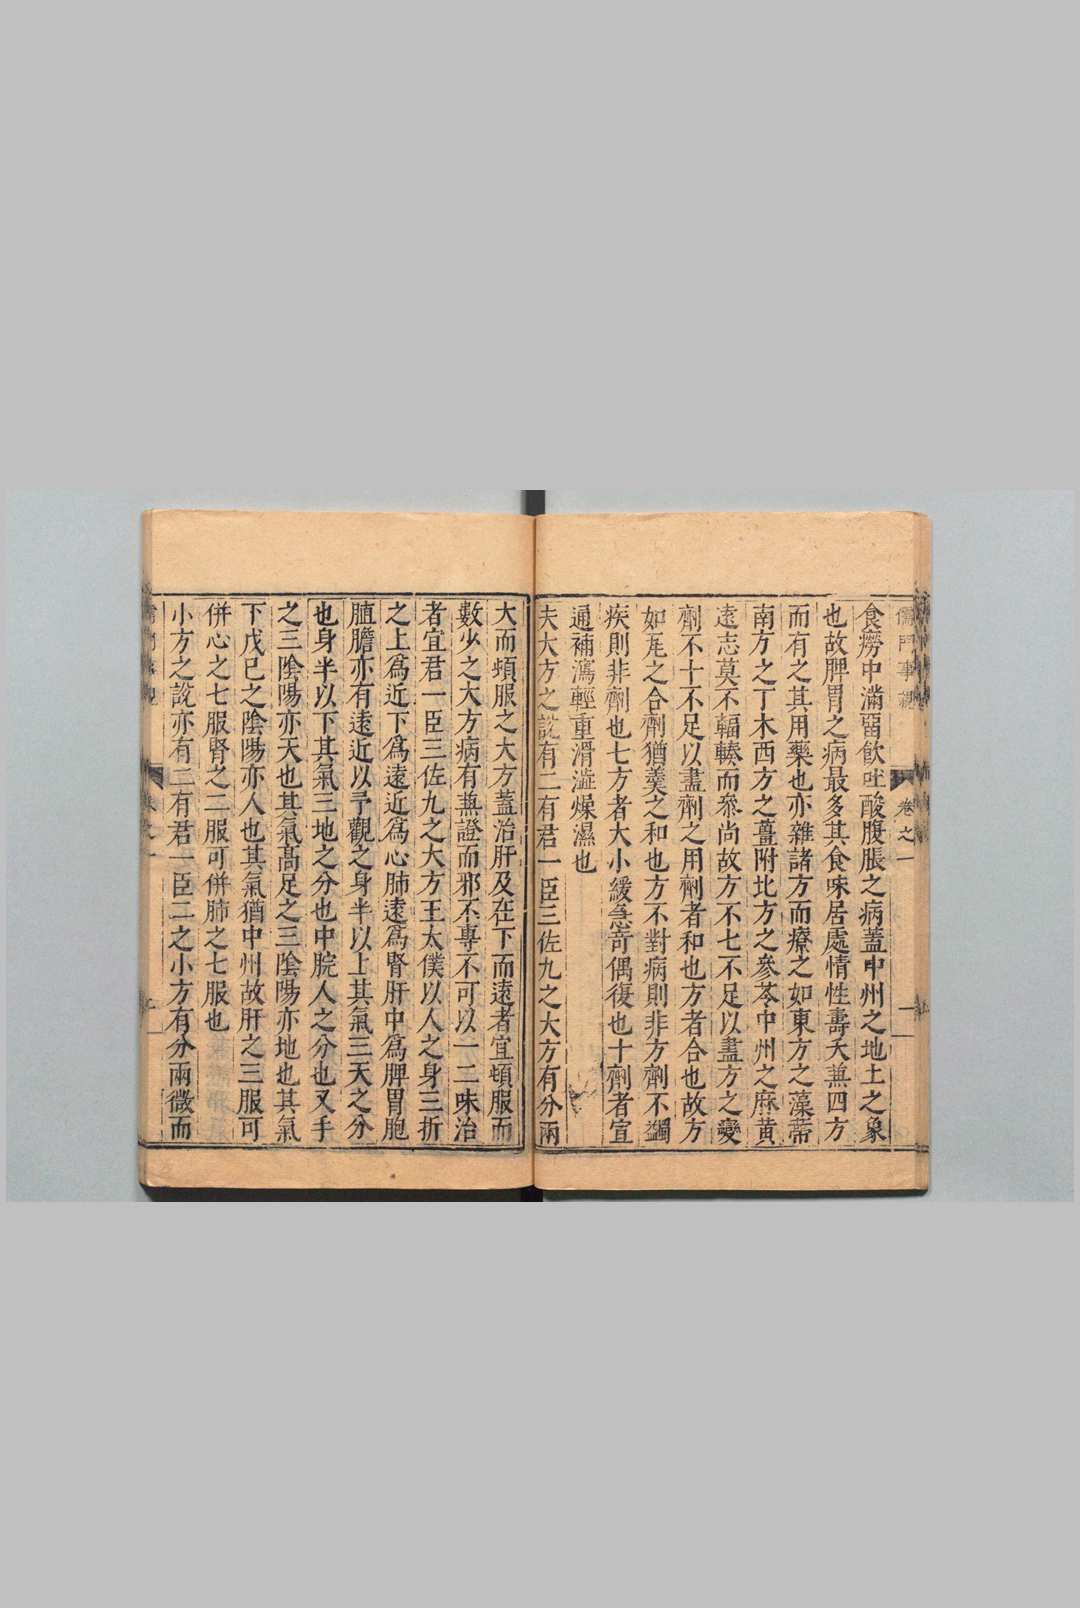 儒門事親 卷之一 一
食癆中滿留飲吐酸腹脹之病蓋中州之地土之象
也故脾胃之病最多其食味居處情性壽夭兼四方
而有之其用藥也亦雜諸方而療之如東方之藻蔕
南方之丁木西方之薑附北方之參苓中州之麻黃
遠志莫不輻輳而參尚故方不七不足以盡方之變
劑不十不足以盡劑之用劑者和也方者合也故方
如瓦之合劑猶羹之和也方不對病則非方劑不蠲
疾則非劑也七方者大小緩急竒偶復也十劑者宣
通補瀉輕重滑澁燥濕也
夫大方之說有二有君一臣三佐九之大方有分兩
大而頓服之大方蓋治肝及在下而遠者宜頓服而
數少之大方病有兼證而邪不專不可以一二味治
者宜君一臣三佐九之大方王太僕以人之身三折
之上爲近下爲遠近爲心肺遠爲腎肝中爲脾胃胞
䐈膽亦有遠近以予觀之身半以上其氣三天之分
也身半以下其氣三地之分也中脘人之分也又手
之三陰陽亦天也其氣高足之三陰陽亦地也其氣
下戊己之陰陽亦人也其氣猶中州故肝之三服可
併心之七服腎之二服可併肺之七服也
小方之說亦有二有君一臣二之小方有分兩微而